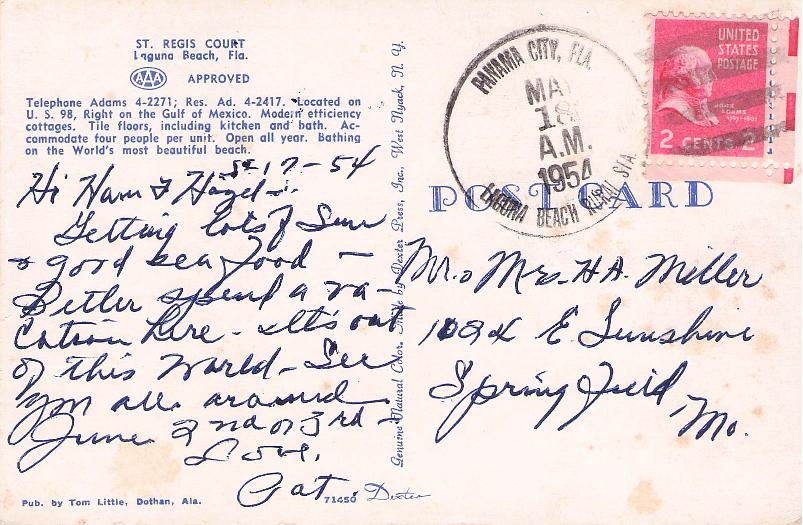 ST. REGIS COURT
Laguna Beach, Fla.
AAA APPROVED
Telephone Adams 4-2271; Res. Ad. 4-2417. Located on
U. S. 98, Right on the Gulf of Mexico. Modern efficiency
cottages. Tile floors, including kitchen and bath. Ac-
commodate four people per unit. Open all year. Bathing
on the World's most beautiful beach.
5-17-54
Hi Ham & Hazel -
Getting lots of Sun
& good sea food -
Better spend a va-
cation here - It's out
of this world - See
you all around
June 2nd or 3rd -
Love,
Pat.
Pub. by Tom Little, Dothan, Ala.
71450 Dexter
Genuine Natural Color. Made by Dexter Press, Inc., West Nyack, N. Y.
POST CARD
PANAMA CITY, FLA.
MAY
18
A.M.
1954
LAGUNA BEACH RURAL STA.
UNITED
STATES
POSTAGE
JOHN
ADAMS
1797-1801
2 CENTS 2
Mr. & Mrs. H A. Miller
1024 E Sunshine
Springfield
Mo.